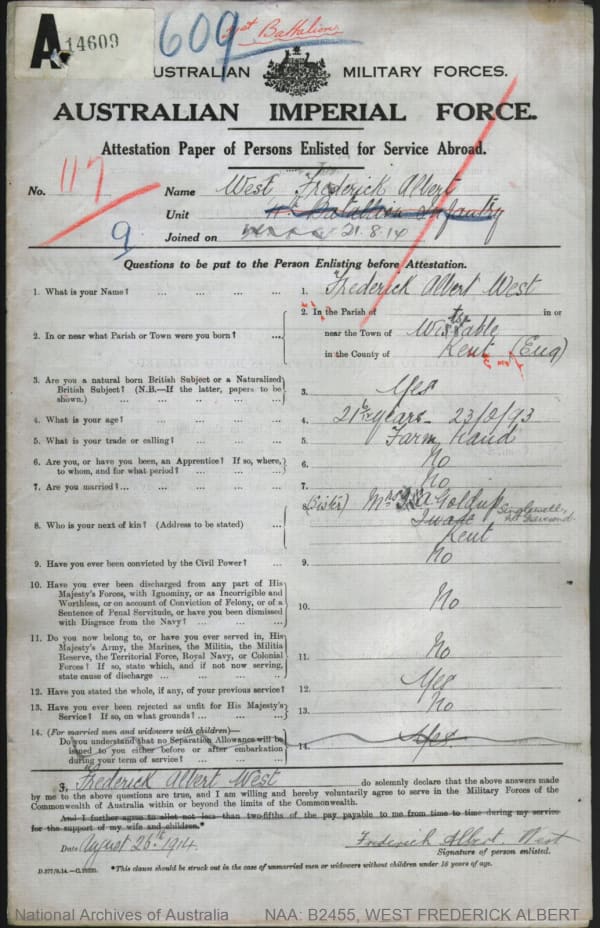 A 14609 609 21st Battalion
AUSTRALIAN MILITARY FORCES.
AUSTRALIAN IMPERIAL FORCE.
Attestation Paper of Persons Enlisted for Service Abroad.
No. 117 Name West Frederick Albert
Unit Battalion Infantry
9 Joined on 21.8.14
Questions to be put to the Person Enlisting before Attestation.
1. What is your Name? ... ... ... ... 1. Frederick Albert West
2. In or near what Parish or Town were you born? ... 2. In the Parish of in or
near the Town of Witstable
in the County of Kent (Eng)
3. Are you a natural born British Subject or a Naturalized
British Subject? (N.B.—If the latter, papers to be
shown.) ... ... ... ... ... 3. Yes
4. What is your age? ... ... ... ... 4. 21 years
5. What is your trade or calling? ... ... ... 5. Farm Hand
6. Are you, or have you been, an Apprentice? If so, where,
to whom, and for what period? ... ... ... 6. No
7. Are you married? ... ... ... ... ... 7. No
8. Who is your next of kin? (Address to be stated) ... 8. (Sister) Mrs Goldup
Kent
9. Have you ever been convicted by the Civil Power? ... 9. No
10. Have you ever been discharged from any part of His
Majesty's Forces, with Ignominy, or as Incorrigible and
Worthless, or on account of Conviction of Felony, or of a
Sentence of Penal Servitude, or have you been dismissed
with Disgrace from the Navy? ... ... ... 10. No
11. Do you now belong to, or have you ever served in, His
Majesty's Army, the Marines, the Militia, the Militia
Reserve, the Territorial Force, Royal Navy, or Colonial
Forces? If so, state which, and if not now serving,
state cause of discharge ... ... ... ... 11. No
12. Have you stated the whole, if any, of your previous service? 12. Yes
13. Have you ever been rejected as unfit for His Majesty's
Service? If so, on what grounds? ... ... ... 13. No
14. (For married men and widowers with children)—
Do you understand that no Separation Allowance will be
issued to you either before or after embarkation
during your term of service? ... ... ... 14. Yes
I, Frederick Albert West do solemnly declare that the above answers made
by me to the above questions are true, and I am willing and hereby voluntarily agree to serve in the Military Forces of the
Commonwealth of Australia within or beyond the limits of the Commonwealth.
And I further agree to allot not less than two-fifths of the pay payable to me from time to time during my service
for the support of my wife and children.*
Date August 26th 1914. Frederick Albert West
Signature of person enlisted.
*This clause should be struck out in the case of unmarried men or widowers without children under 18 years of age.
National Archives of Australia NAA: B2455, WEST FREDERICK ALBERT